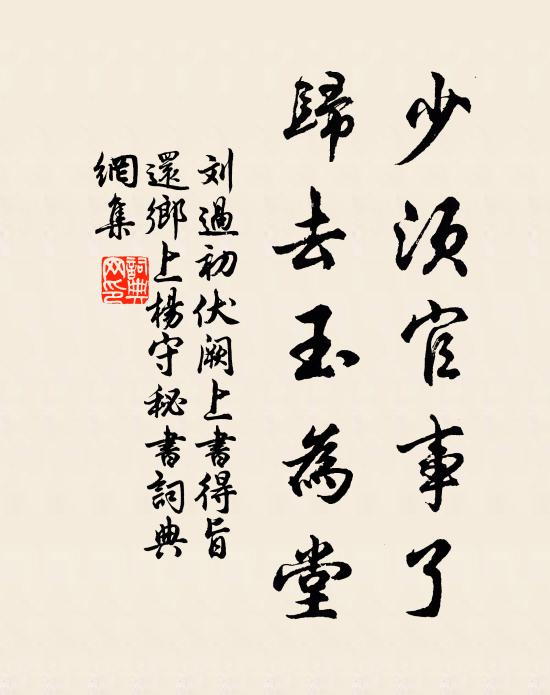 少須官事了
歸去玉為堂
刘過初伏闕上書得旨
還鄉上楊守秘書詞典
網集
詞典網印